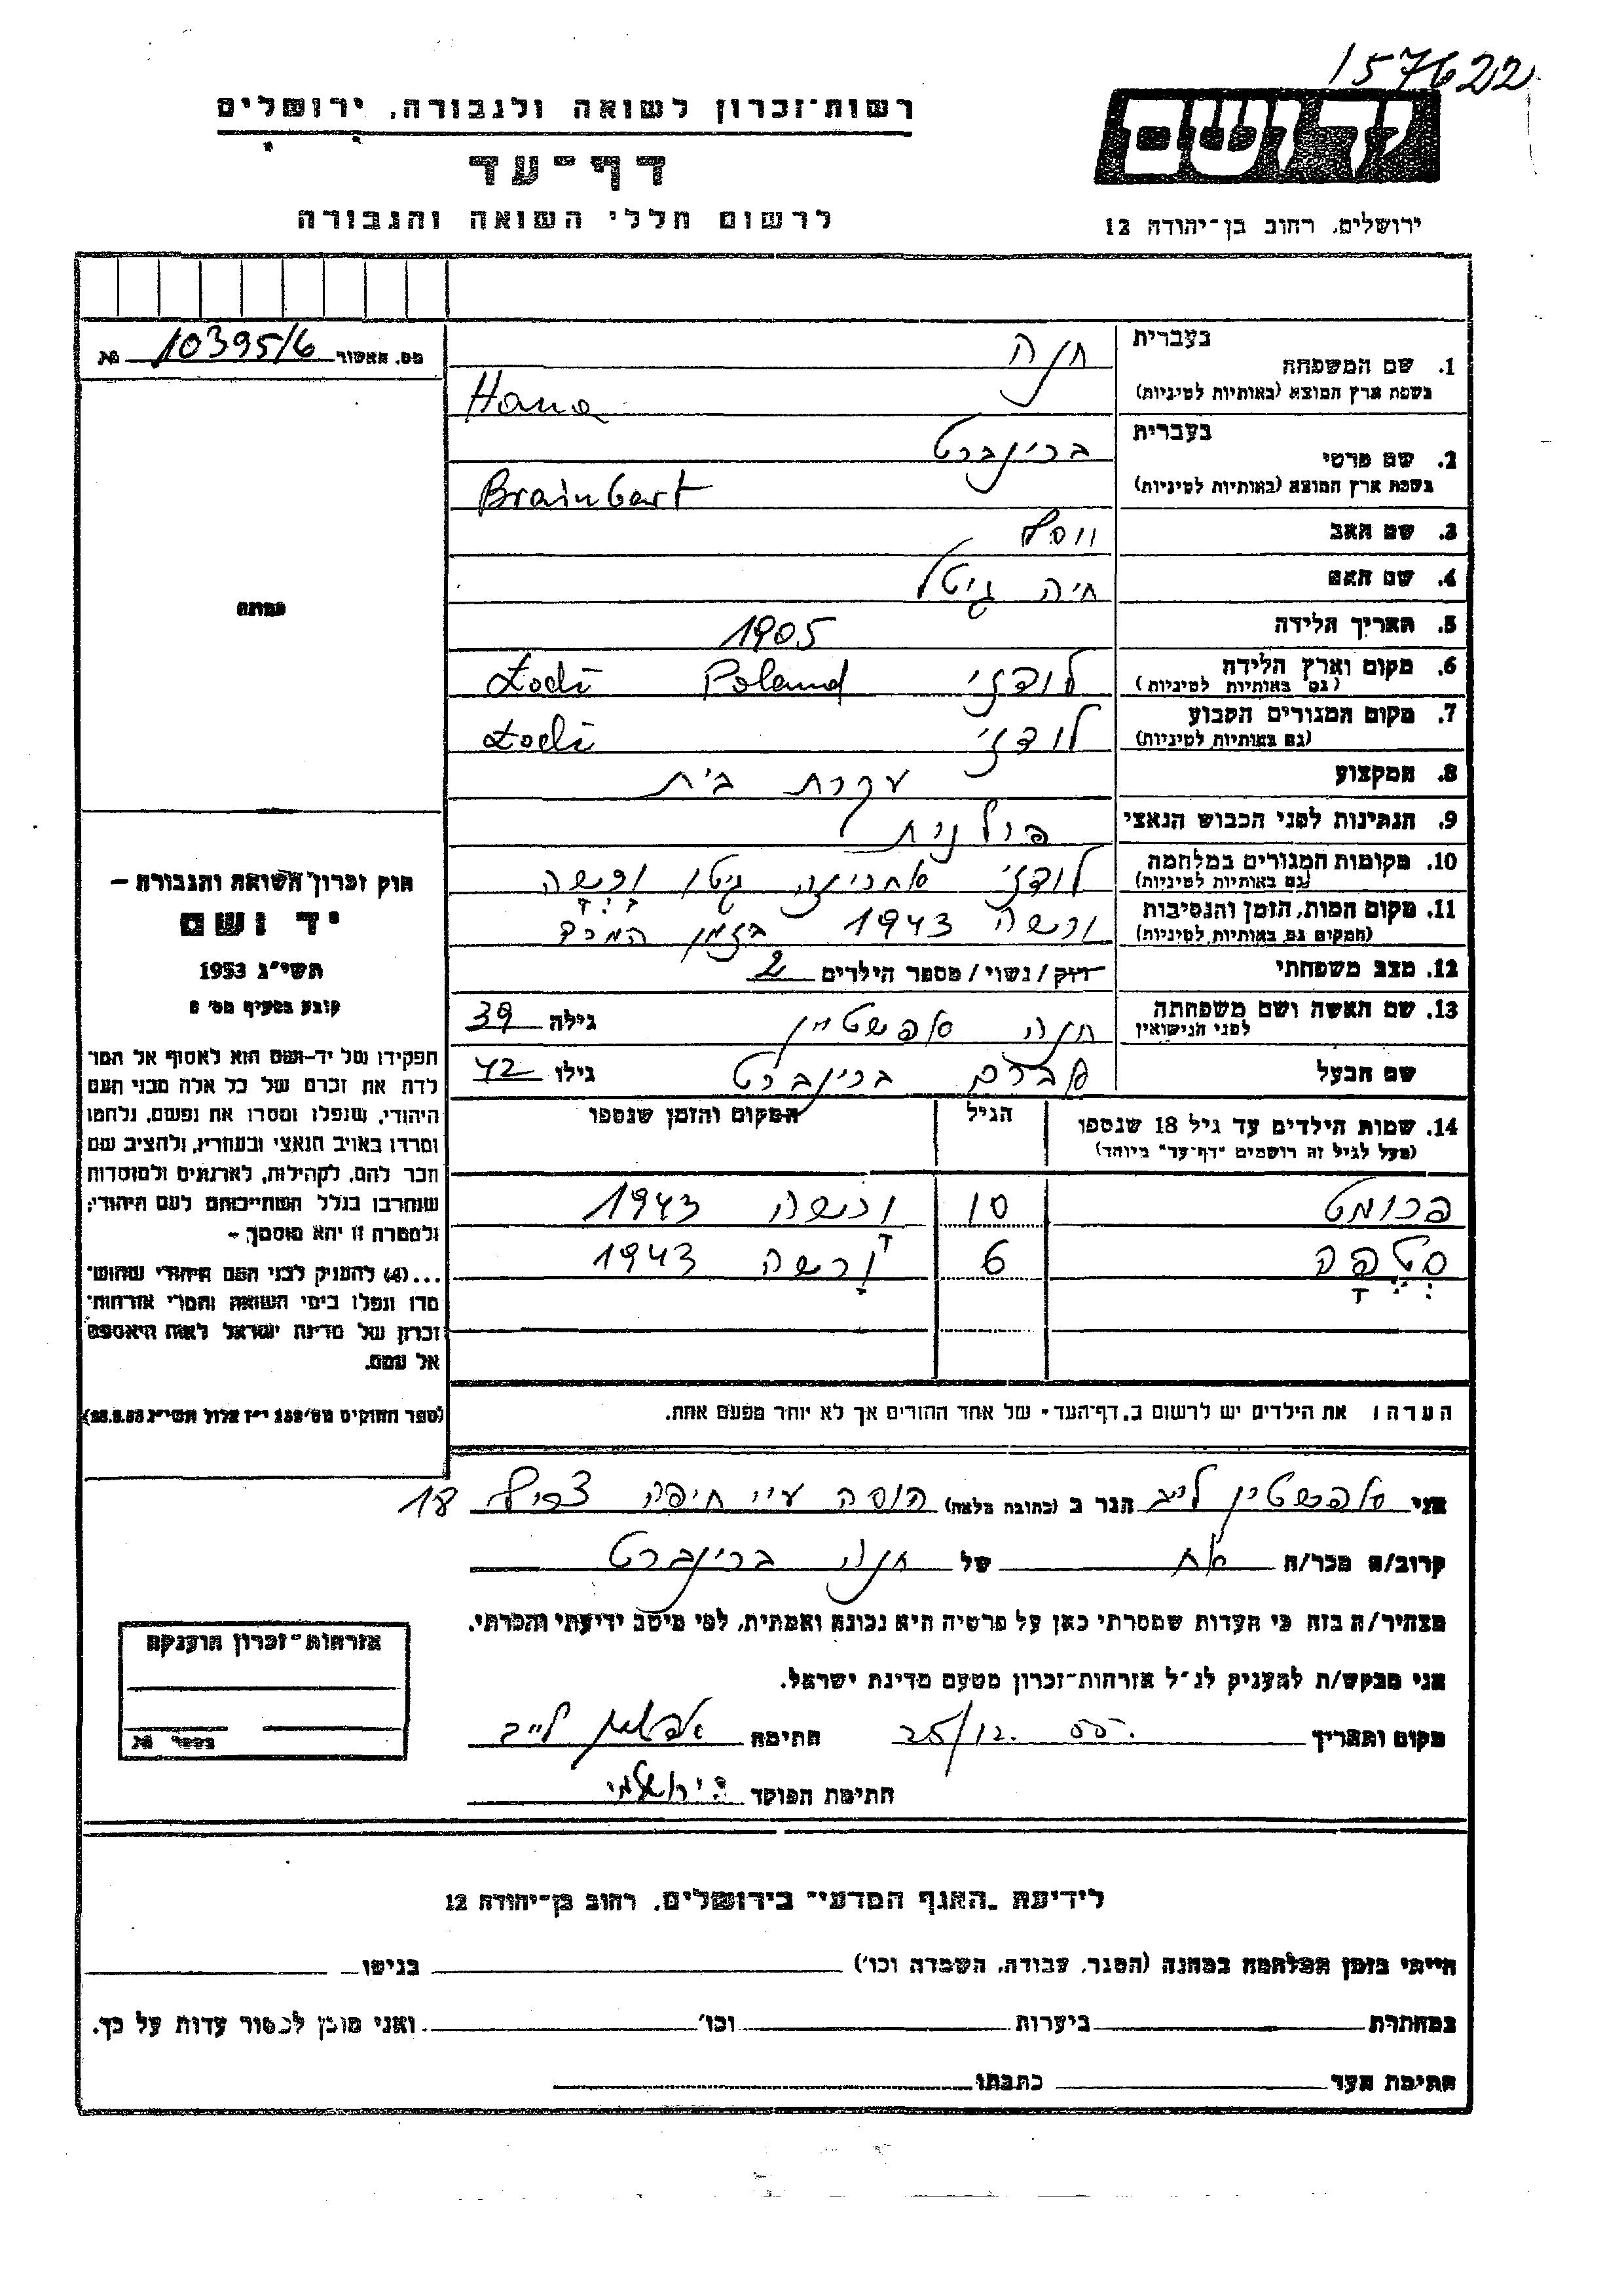 157622
רשות-זכרון לשואה ולגבורה, ירושלים
יד ושם
דף-עד
לרשום חללי השואה והגבורה
ירושלים, רחוב בן-יהודה 12
בעברית חנה
1. שם המשפחה
בשפת ארץ המוצא (באותיות לטיניות) Hana
מס. האשור 10395/6 №
בעברית ברינברט
2. שם פרטי
בשפת ארץ המוצא (באותיות לטיניות) Brainbart
3. שם האב יוסף
4. שם האם חיה גיטל
5. תאריך הלידה 1905
6. מקום וארץ הלידה לודז' Poland Łodź
(גם באותיות לטיניות)
7. מקום המגורים הקבוע לודז' Łodź
(גם באותיות לטיניות)
8. המקצוע עקרת בית
9. הנתינות לפני הכבוש הנאצי פולנית
10. מקומות המגורים במלחמה לודז' גיטו ורשה
(גם באותיות לטיניות)
11. מקום המות, הזמן והנסיבות ורשה 1943 בזמן המרד
(המקום גם באותיות לטיניות)
12. מצב משפחתי רווק / נשוי / מספר הילדים 2
13. שם האשה ושם משפחתה חנה אפשטיין גילה 39
לפני הנישואין
שם הבעל אברם ברינברט גילו 42
14. שמות הילדים עד גיל 18 שנספו הגיל המקום והזמן שנספו
(מעל לגיל זה רושמים "דף-עד" מיוחד)
10 ורשה 1943
סטפה 6 ורשה 1943
הערה: את הילדים יש לרשום ב"דף-העד" של אחד ההורים אך לא יותר מפעם אחת.
תמונה
חוק זכרון השואה והגבורה –
יד ושם
תשי"ג 1953
קובע בסעיף מס'
תפקידו של יד-ושם הוא לאסוף אל המו
לדת את זכרם של כל אלה מבני העם
היהודי, שנפלו ומסרו את נפשם, נלחמו
ומרדו באויב הנאצי ובעוזריו, ולהציב שם
וזכר להם, לקהילות, לארגונים ולמוסדות
שנחרבו בגלל השתייכותם לעם היהודי;
ולמטרה זו יהא מוסמך: –
...(4) להעניק לבני העם היהודי שהוש
מדו ונפלו בימי השואה והמרי אזרחות-
זכרון של מדינת ישראל לאות היאספם
אל עמם.
(ספר החוקים מס' 132 י"ז אלול תשי"ג 28.8.53)
אני אפשטין לייב הגר ב (כתובת מלאה) הוסה ע"י חיפה 18
קרוב/ה מכר/ה אח של חנה ברינברט
מצהיר/ה בזה כי העדות שמסרתי כאן על פרטיה היא נכונה ואמתית, לפי מיטב ידיעתי והכרתי.
אני מבקש/ת להעניק לנ"ל אזרחות-זכרון מטעם מדינת ישראל.
מקום ותאריך 25/12. 55. חתימה אפשטין לייב
חתימת הפוקד ירושלמי
אזרחות-זכרון הוענקה
בספר №
לידיעת "האגף המדעי" בירושלים, רחוב בן-יהודה 12
הייתי בזמן המלחמה במחנה (הסגר, עבודה, השמדה וכו') בגיטו
במחתרת ביערות וכו' ואני מוכן למסור עדות על כך.
חתימת העד כתבתו